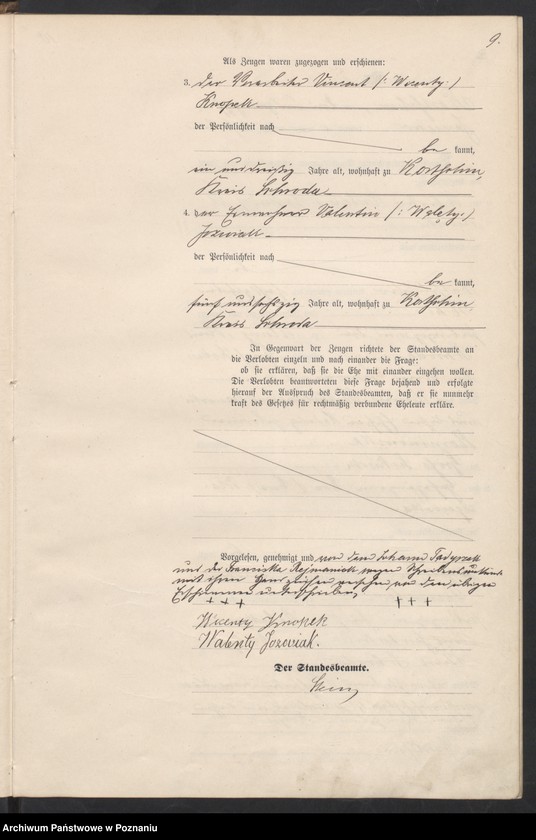 9.
Als Zeugen waren zugezogen und erschienen:
3. der Vorarbeiter Vincent (: Wicenty :)
Knopek
der Persönlichkeit nach
be kannt,
ein und dreißig Jahre alt, wohnhaft zu
Kreis Schroda
4. der Einwohner Valentin (: Walęty :)
Jozwiak
der Persönlichkeit nach
be kannt,
fünf und sechzig Jahre alt, wohnhaft zu
Kreis Schroda
In Gegenwart der Zeugen richtete der Standesbeamte an
die Verlobten einzeln und nach einander die Frage:
ob sie erklären, daß sie die Ehe mit einander eingehen wollen.
Die Verlobten beantworteten diese Frage bejahend und erfolgte
hierauf der Ausspruch des Standesbeamten, daß er sie nunmehr
kraft des Gesetzes für rechtmäßig verbundene Eheleute erkläre.
Vorgelesen, genehmigt und von dem Johann
und der Franciska wegen Schreibensunkunde
mit ihren Handzeichen versehen von den übrigen
Erschienenen unterschrieben,
+ + + + + +
Wicenty Knopek
Walenty Jozwiak.
Der Standesbeamte.
Archiwum Państwowe w Poznaniu